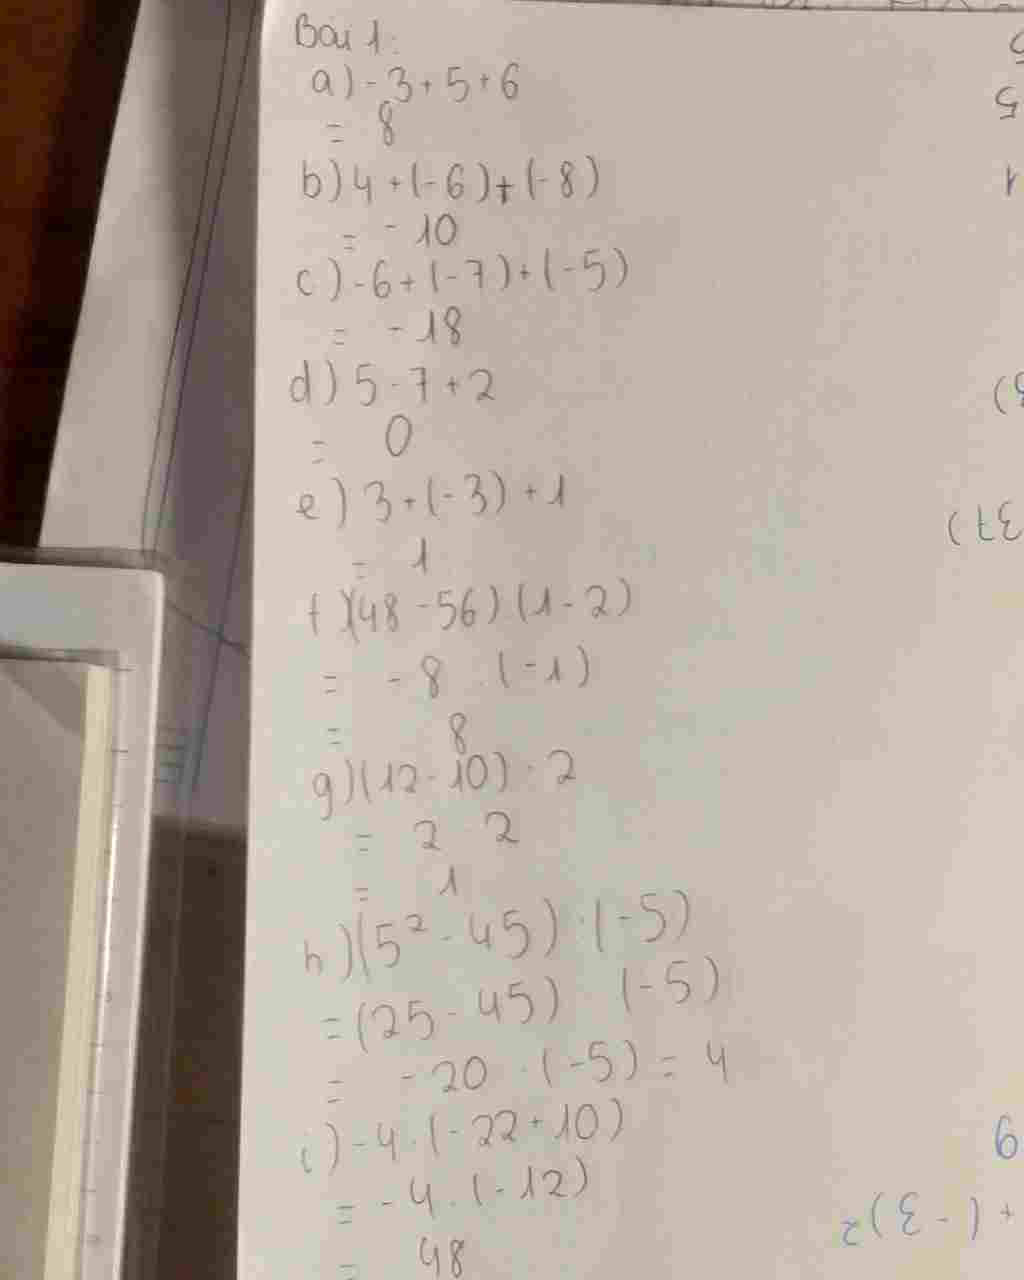 Bài 1:
a) -3+5+6
= 8
b) 4+(-6)+(-8)
= -10
c) -6+(-7)+(-5)
= -18
d) 5-7+2
= 0
e) 3+(-3)+1
= 1
f) (48-56)(1-2)
= -8 . (-1)
= 8
g) (12-10) : 2
= 2 2
= 1
h) (5²-45) : (-5)
= (25-45) (-5)
= -20 : (-5) = 4
i) -4.(-22+10)
= -4.(-12)
= 48
5
1
3)
37)
9
+(-3)²